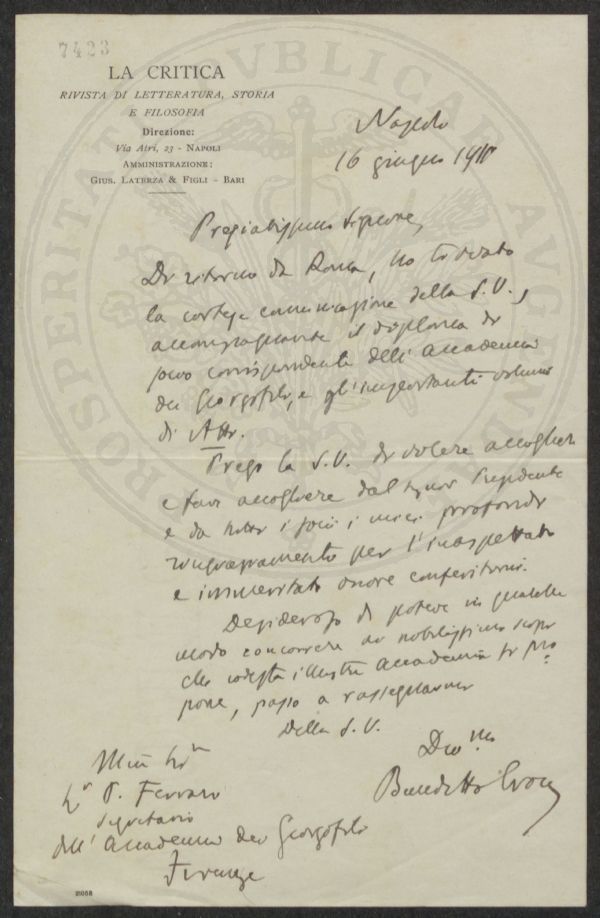 7423
PROSPERITATI PVBLICAE AVGENDAE
LA CRITICA
RIVISTA DI LETTERATURA, STORIA
E FILOSOFIA
Direzione:
Via Atri, 23 - NAPOLI
AMMINISTRAZIONE:
GIUS. LATERZA & FIGLI - BARI
Napoli
16 giugno 1911
Pregiatissimo Signore,
Di ritorno da Roma, ho trovato
la cortese comunicazione della S.V.,
accompagnante il diploma di
socio corrispondente dell'Accademia
dei Georgofili, e gl'importanti volumi
di Atti.
Prego la S.V. di volere accogliere
e fare accogliere dal signor Presidente
e da tutti i soci i miei profondi
ringraziamenti per l'inaspettato
e immeritato onore conferitomi.
Desideroso di potere in qualche
modo concorrere ai nobilissimi scopi
che codesta illustre Accademia si pro-
pone, passo a rassegnarmi
Della S.V.
Dev.mo
Benedetto Croce
Sr P. Ferrari
Segretario
dell'Accademia dei Georgofili
Firenze